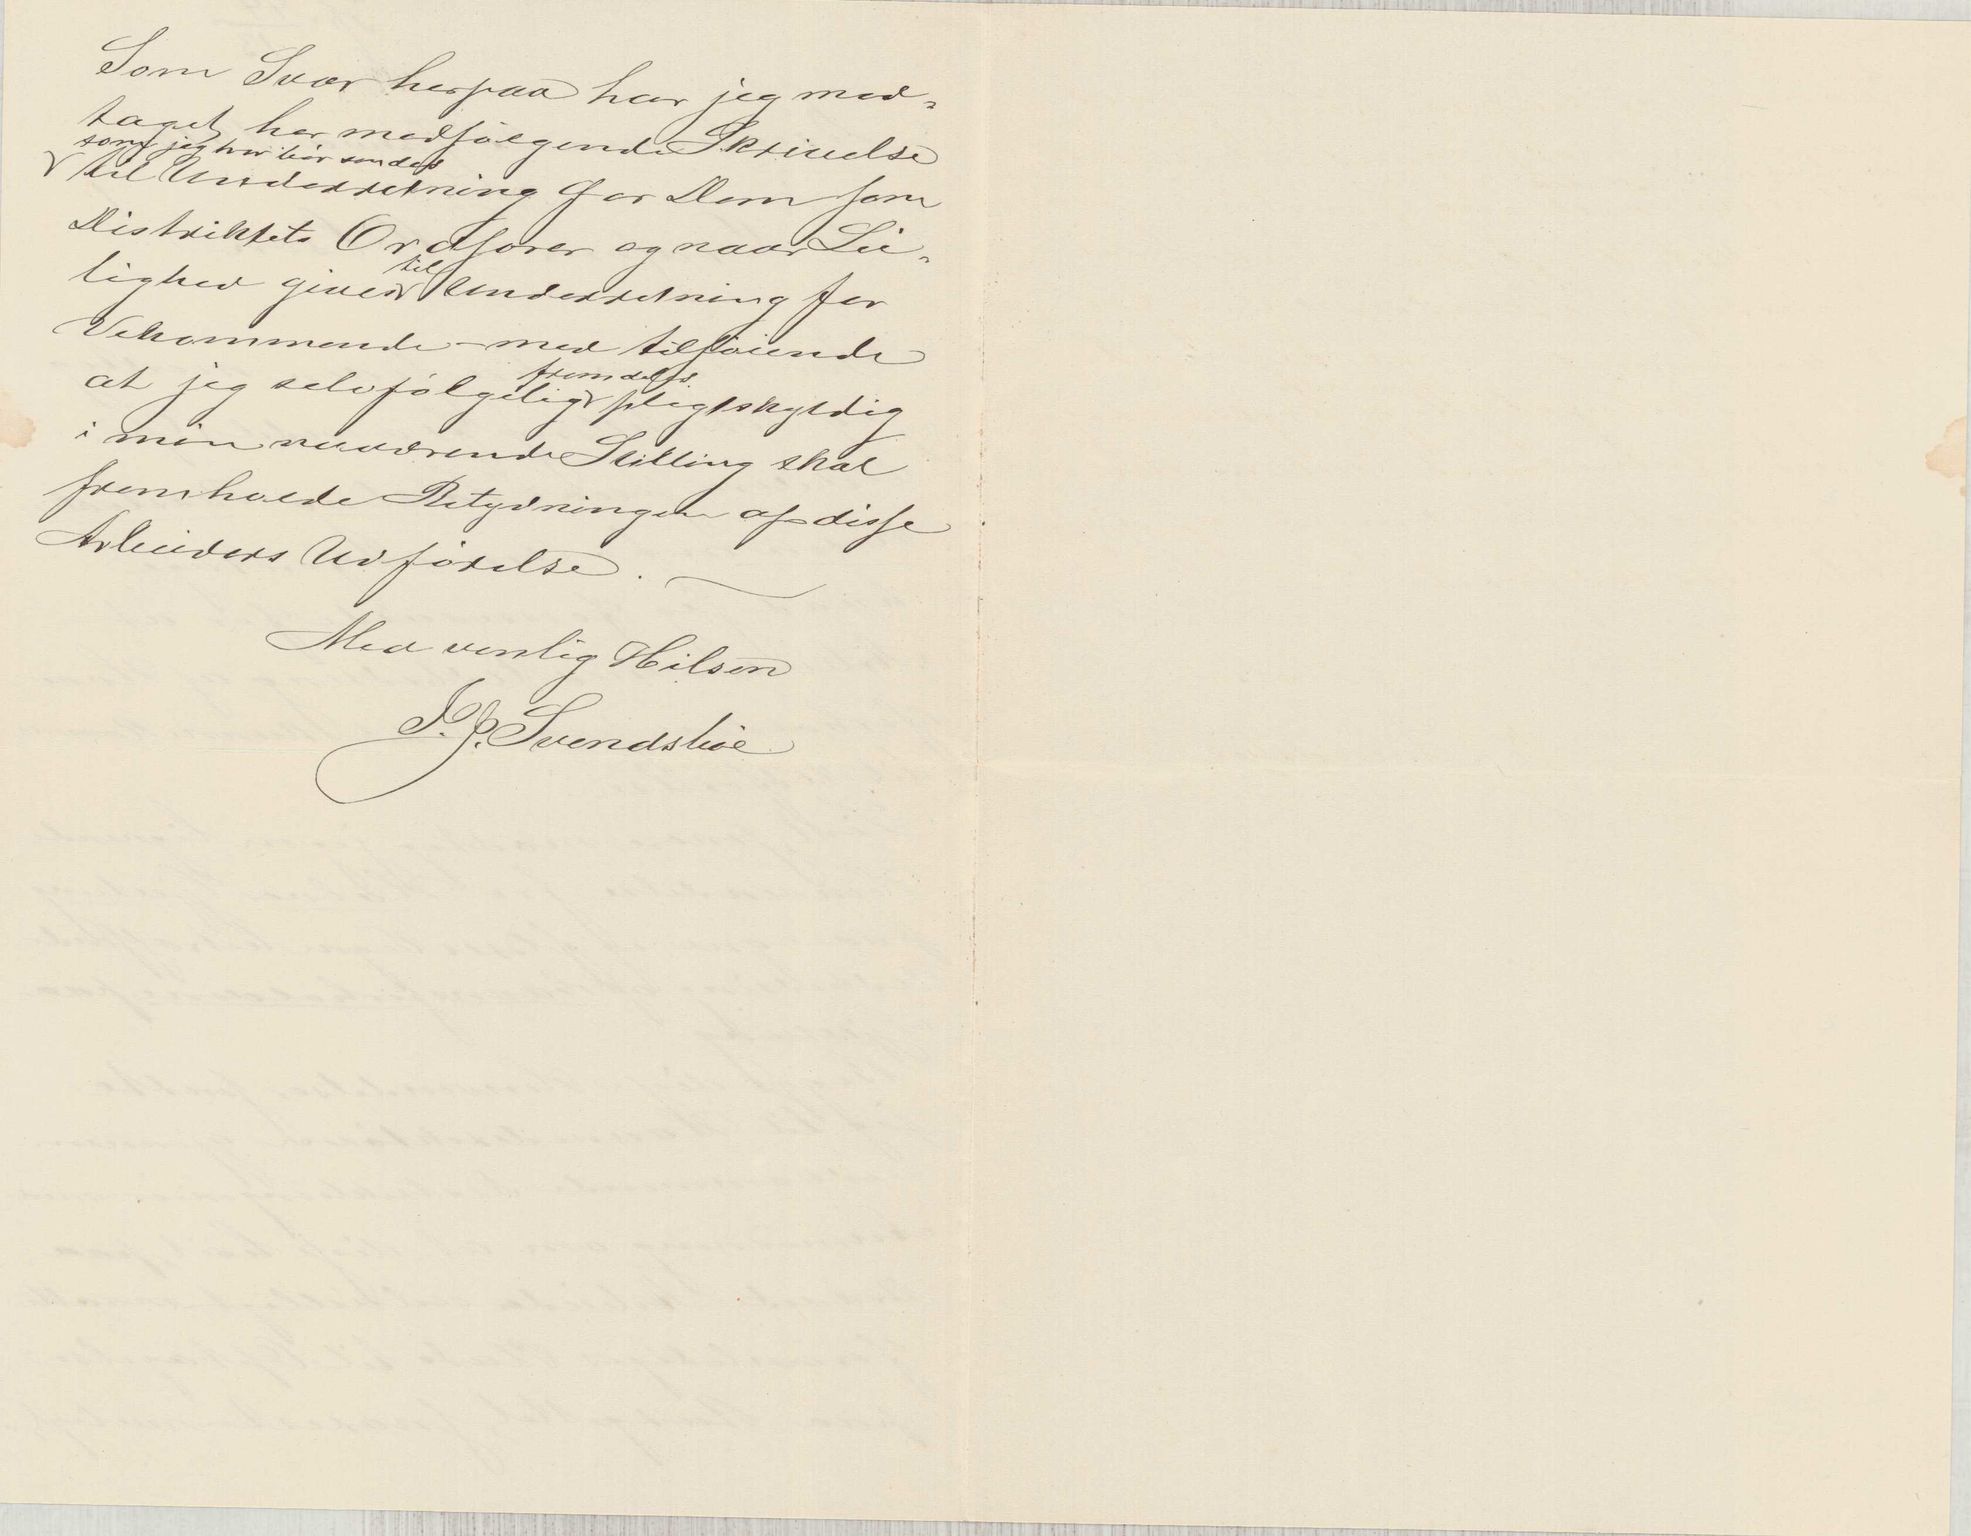 Som Svar herpaa har jeg mod-
taget her medfølgende Skrivelse
som jeg har bør sendes
til Underretning for Dem som
Distriktets Ordfører og naar Lei-
lighed gives til Underretning for
Vekommende – med tilføiende
at jeg selvfølgelig fremdeles pligtskyldig
i min nuværende Stilling skal
fremholde Betydningen af disse
Arbeiders Udførelse.
Med venlig Hilsen
J. J. Svendsbøe